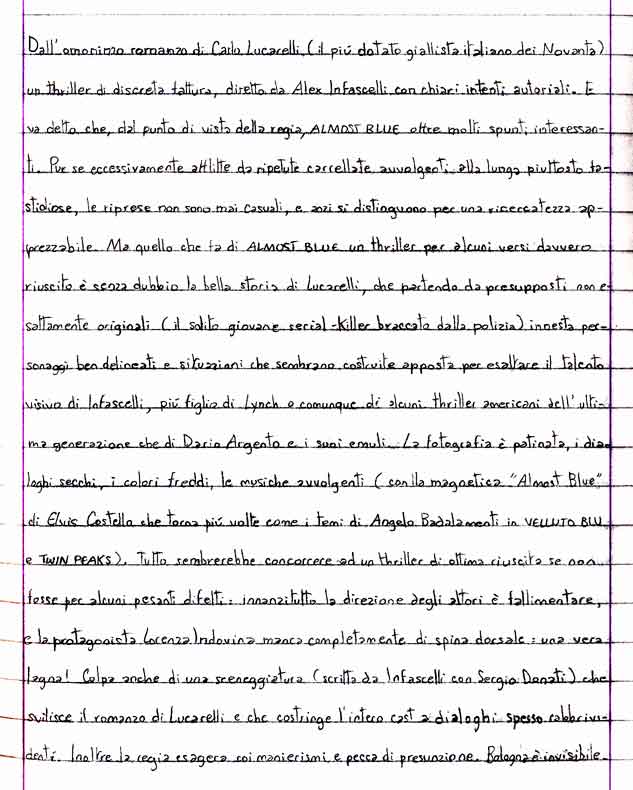 Dall'omonimo romanzo di Carlo Lucarelli (il più dotato giallista italiano dei Novanta)
un thriller di discreta fattura, diretto da Alex Infascelli con chiari intenti autoriali. E
va detto che, dal punto di vista della regia, ALMOST BLUE offre molti spunti interessan-
ti. Pur se eccessivamente afflitte da ripetute carrellate avvolgenti alla lunga piuttosto fa-
stidiose, le riprese non sono mai casuali, e anzi si distinguono per una ricercatezza ap-
prezzabile. Ma quello che fa di ALMOST BLUE un thriller per alcuni versi davvero
riuscito è senza dubbio la bella storia di Lucarelli, che partendo da presupposti non e-
sattamente originali (il solito giovane serial-killer braccato dalla polizia) innesta per-
sonaggi ben delineati e situazioni che sembrano costruite apposta per esaltare il talento
visivo di Infascelli, più figlio di Lynch o comunque di alcuni thriller americani dell'ulti-
ma generazione che di Dario Argento e i suoi emuli. La fotografia è patinata, i dia-
loghi secchi, i colori freddi, le musiche avvolgenti (con la magnetica "Almost Blue"
di Elvis Costello che torna più volte come i temi di Angelo Badalamenti in VELLUTO BLU
e TWIN PEAKS). Tutto sembrerebbe concorrere ad un thriller di ottima riuscita se non
fosse per alcuni pesanti difetti: innanzitutto la direzione degli attori è fallimentare,
e la protagonista Lorenza Indovina manca completamente di spina dorsale: una vera
lagna! Colpa anche di una sceneggiatura (scritta da Infascelli con Sergio Donati) che
svilisce il romanzo di Lucarelli e che costringe l'intero cast a dialoghi spesso rabbrivi-
denti. Inoltre la regia esagera coi manierismi e pecca di presunzione. Bologna è invisibile.